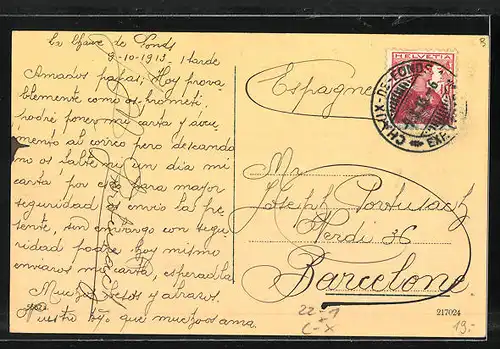 La Chaux de Fonds
9-10-1913 - 1 tarde
Amados papás: Hoy proba-
blemente como os prometí
podré poner mi carta y docu-
mento al correo pero deseando
no os falte ni un dia mi
carta por esta para mayor
seguridad os envio la pre-
sente, sin embargo con segu-
ridad podré hoy mismo
enviaros mi carta, esperadla
Muchos besos y abrazos.
Vuestro hijo que mucho os ama.
Espagne
HELVETIA
CHAUX-DE-FONDS
EXP.
Mr
Joseph Portusach
Verdi 36
Barcelone
22-1
C-X
217024
19.-